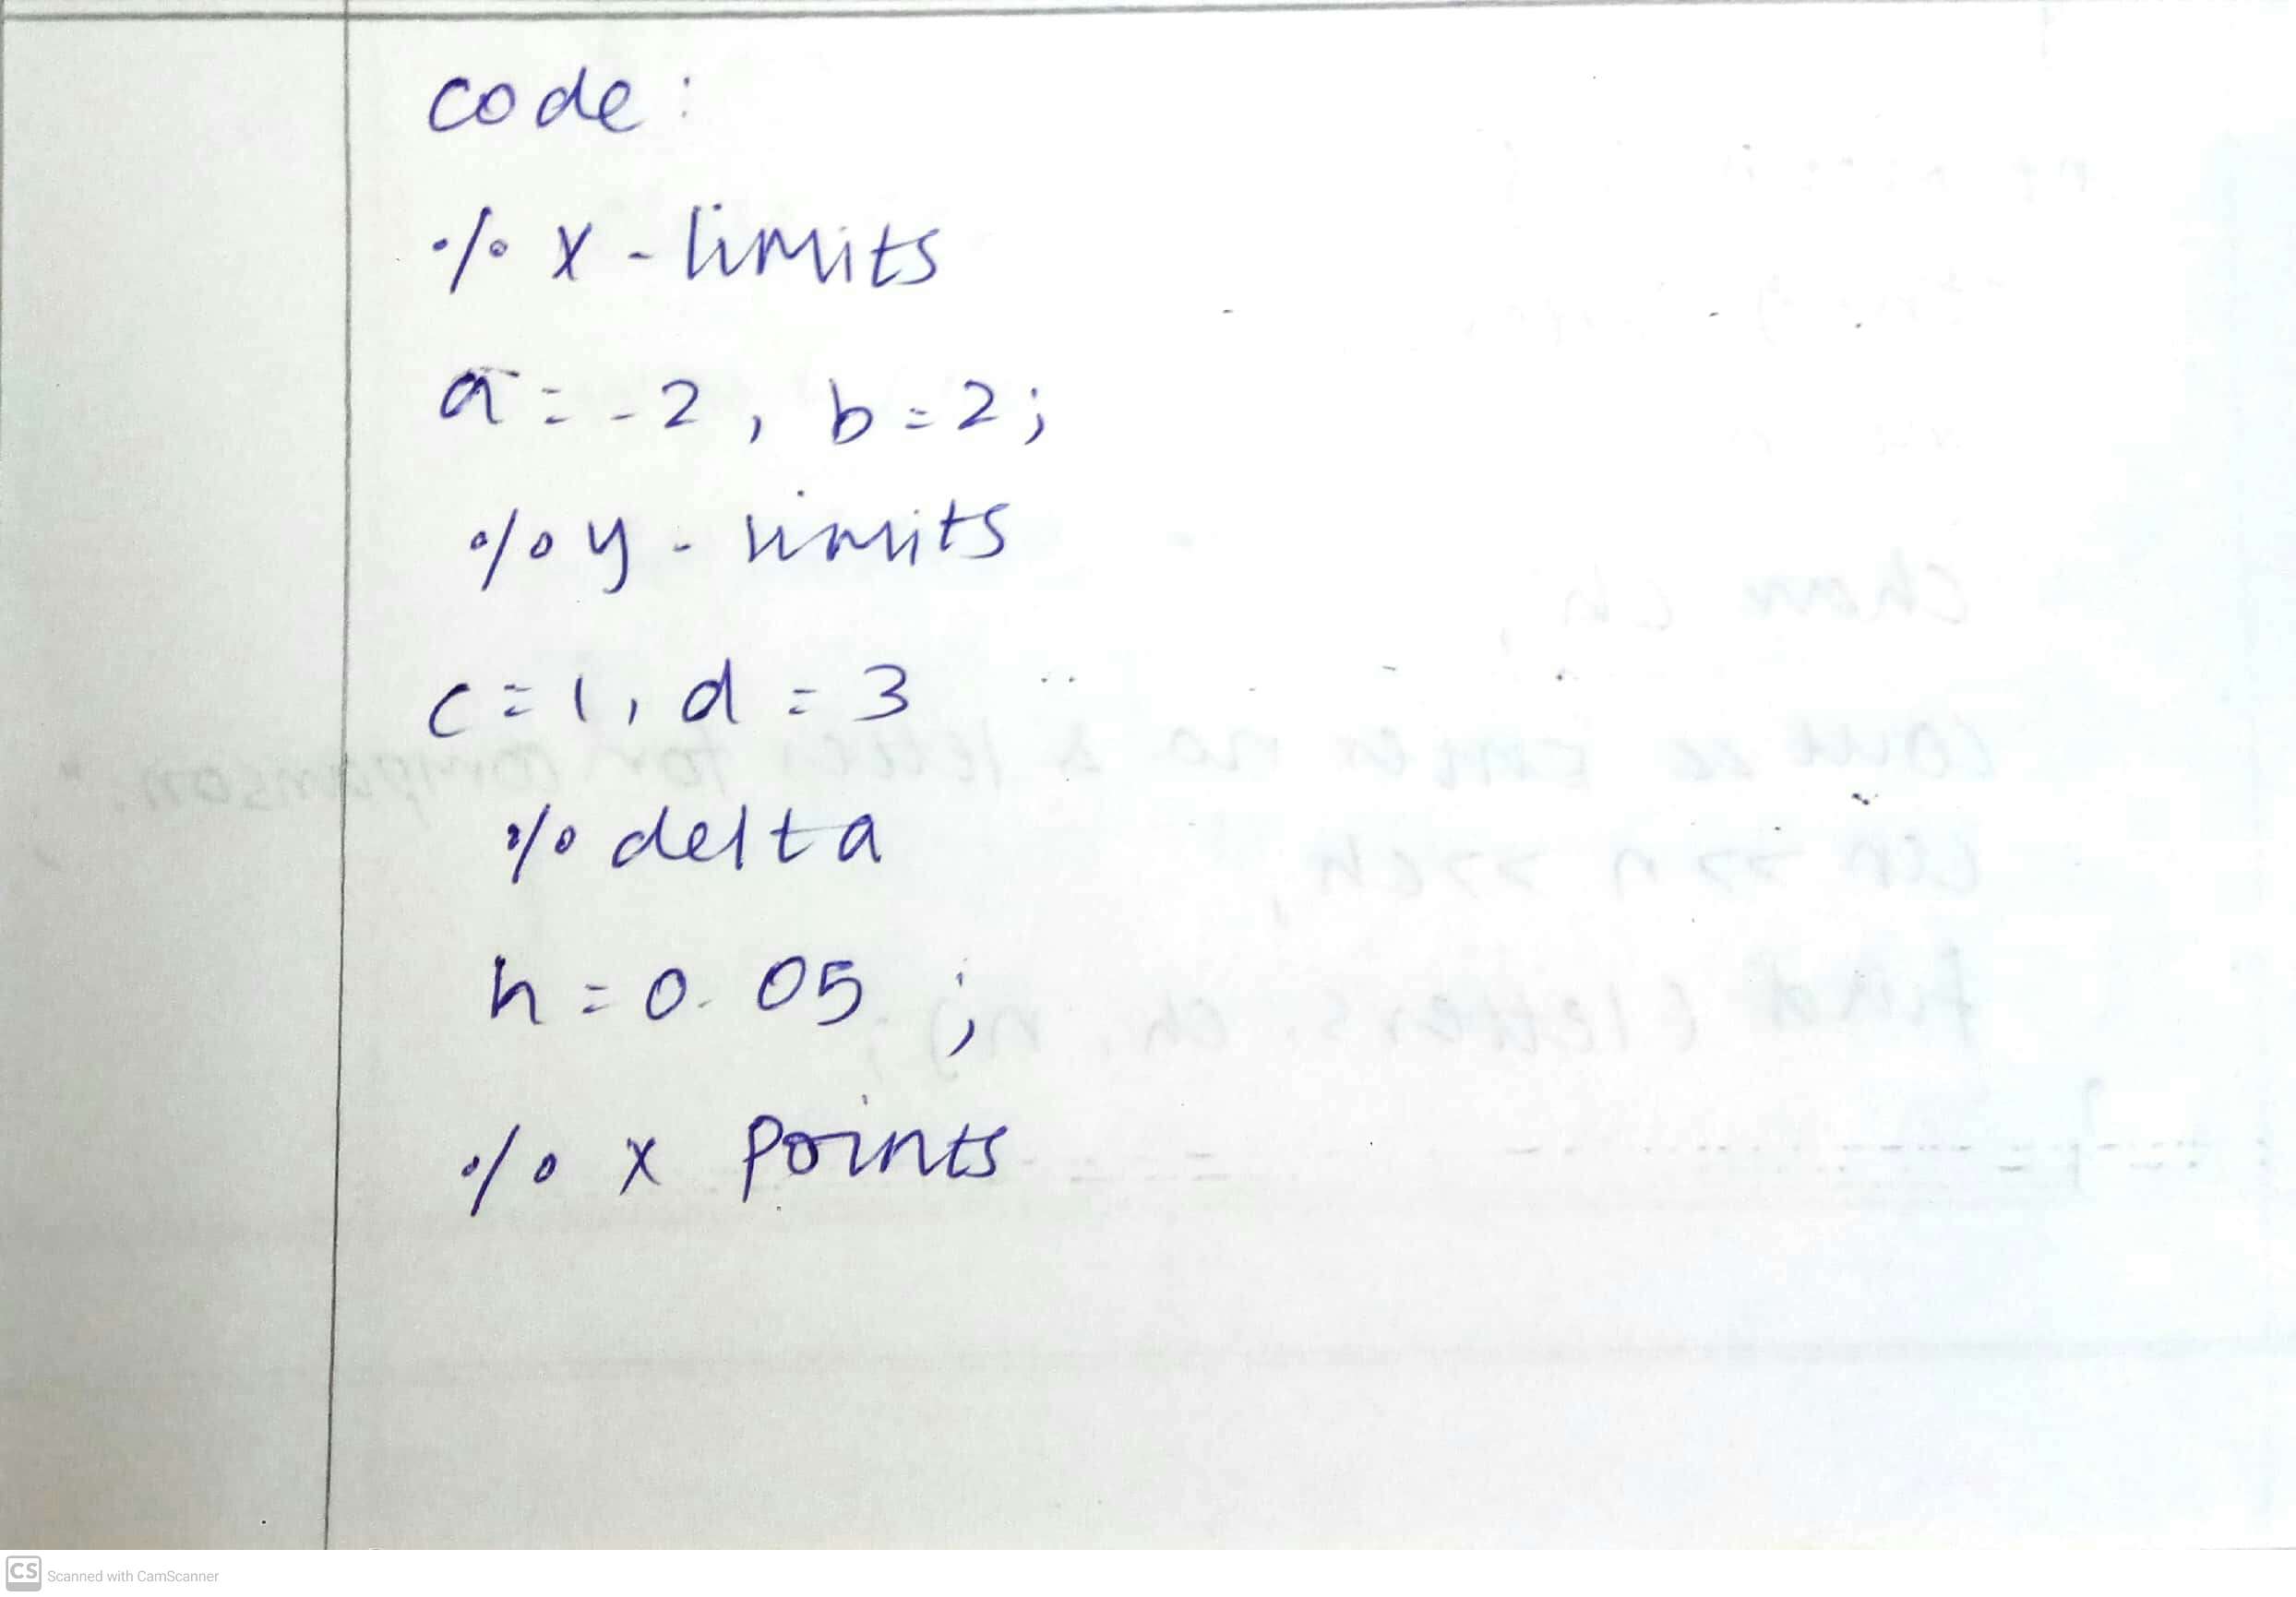 code:
% x-limits
a=-2, b=2;
% y-limits
c=1, d=3
% delta
h=0.05;
% x points
CS Scanned with CamScanner